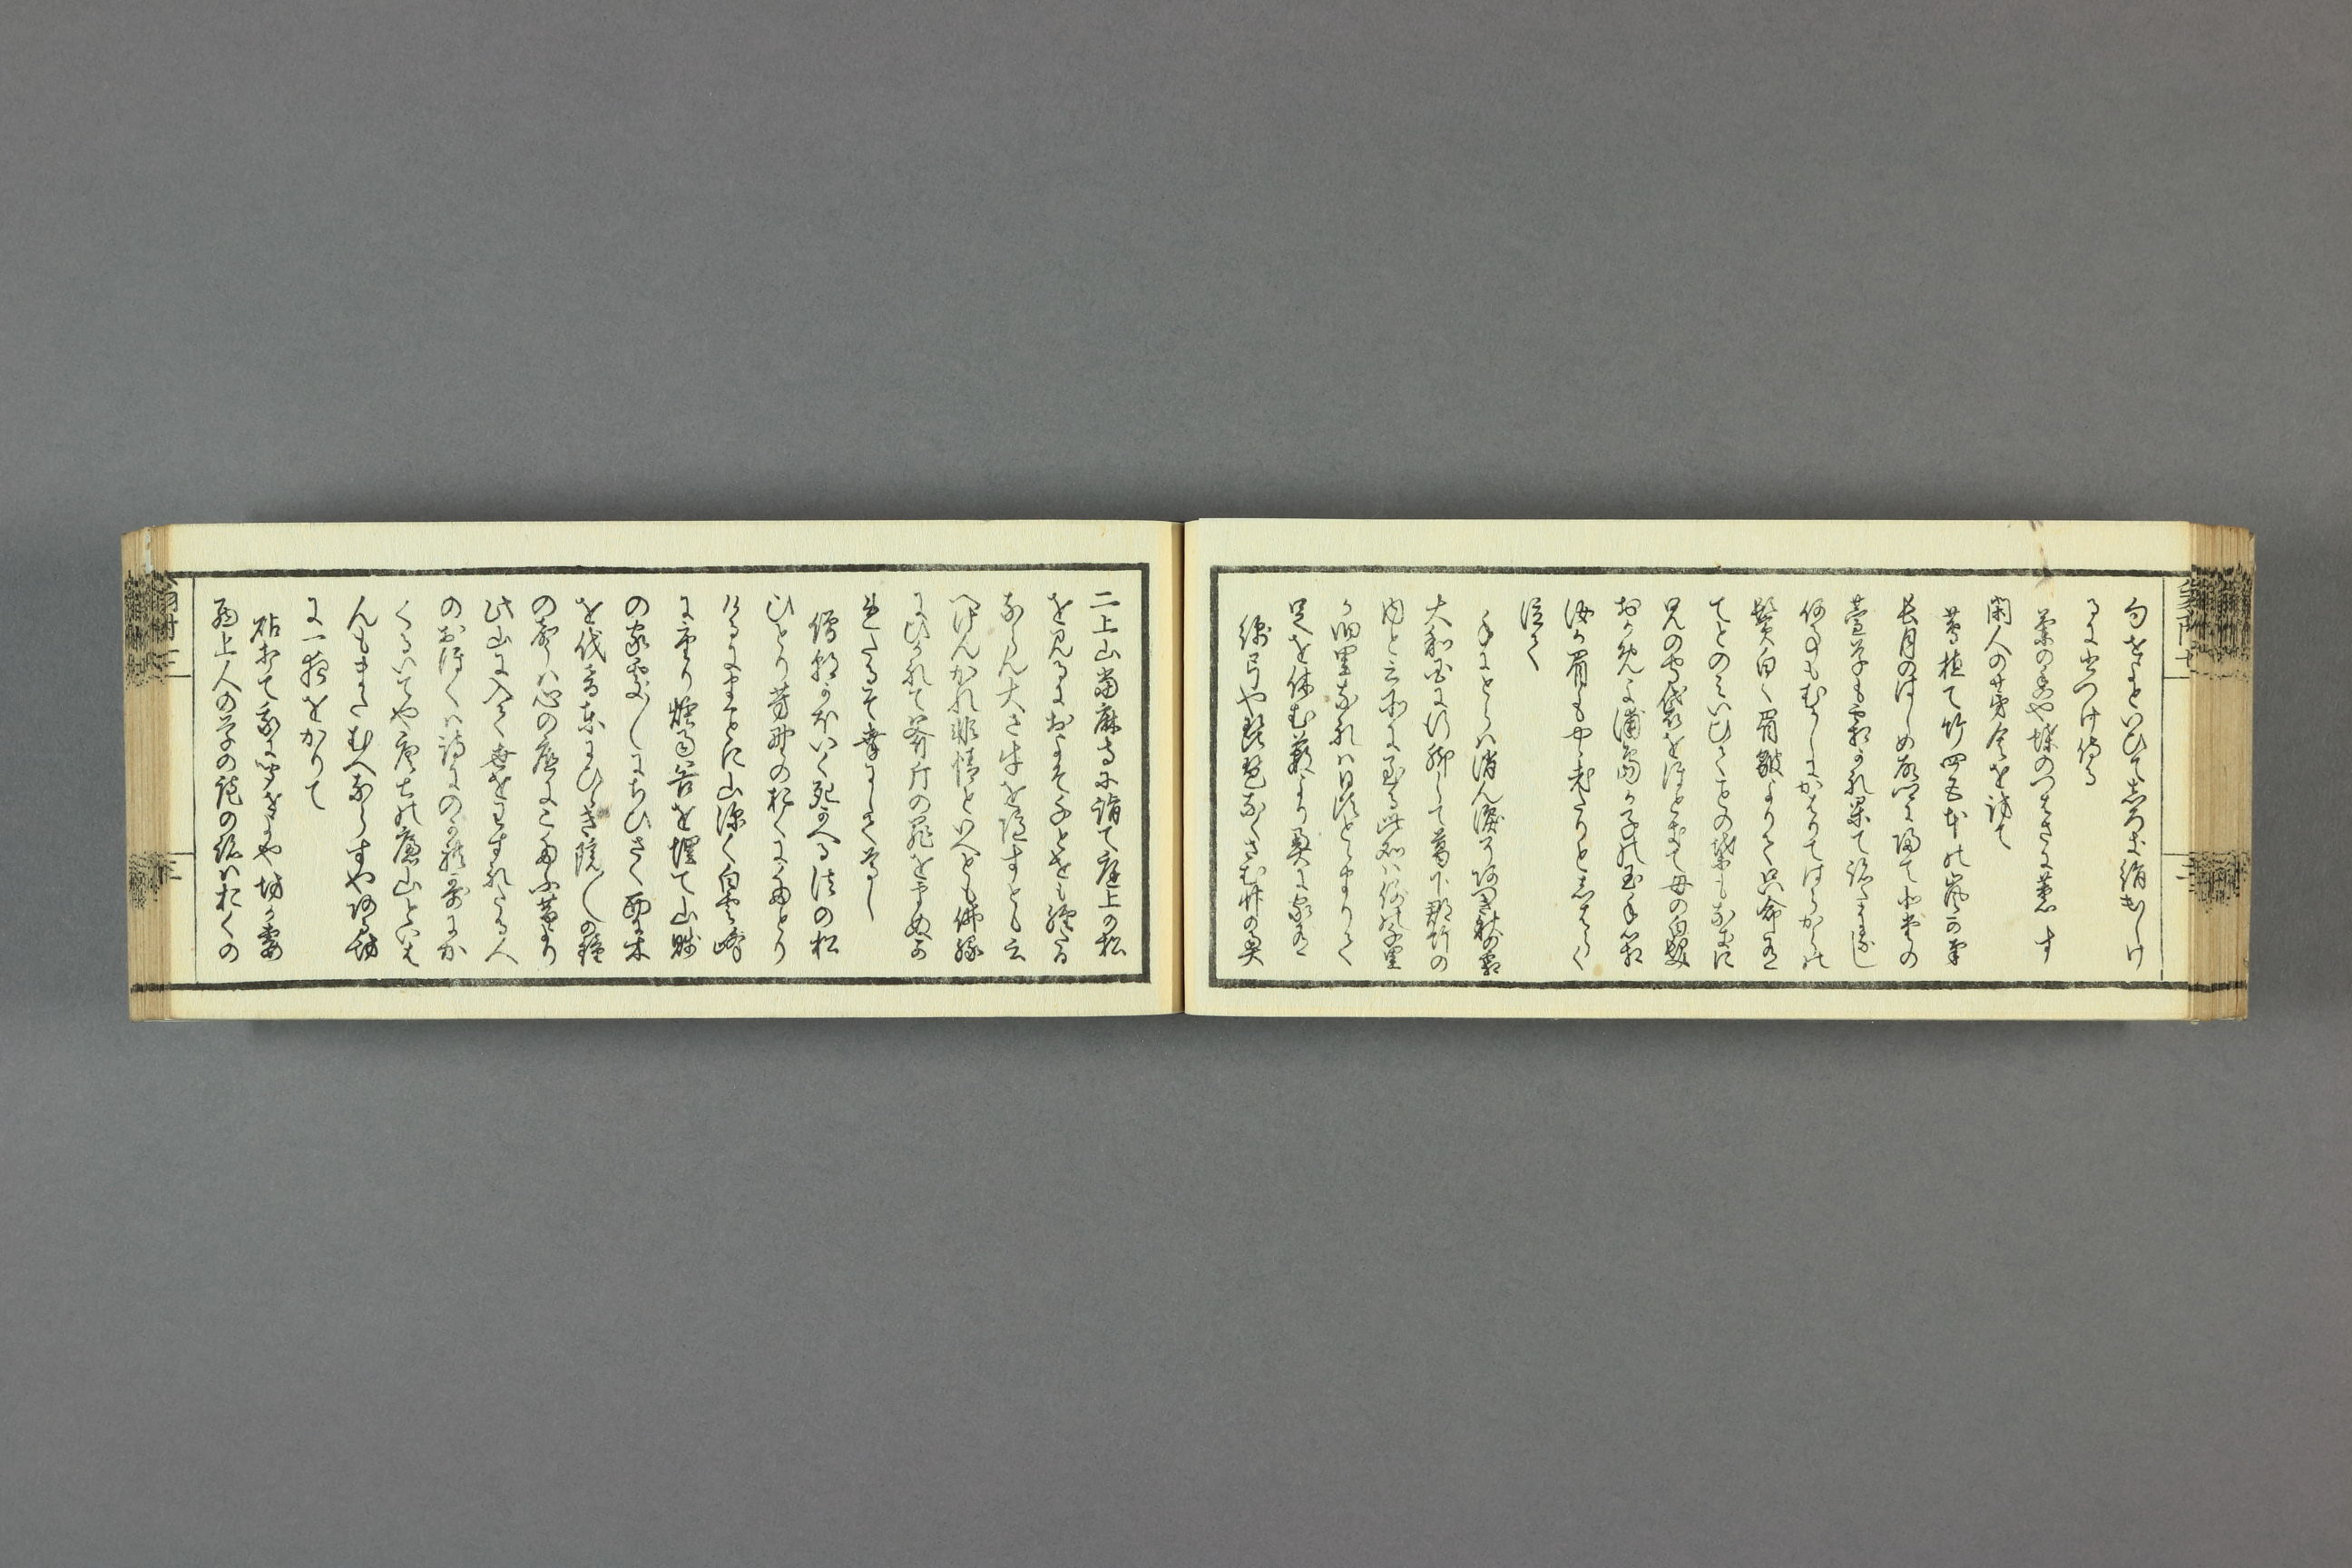 句をせよといひて白ききぬ出しけ
るに書つけ侍る
蘭の香や蝶のつはさに薫す
閑人の茅舎を訪て
蔦植て竹四五本の嵐かな
長月のはしめ故郷に帰て北堂の
萱草も霜かれ果て跡たになし
何事もむかしにかはりてはらからの
鬢白く眉皺よりて只命有
てとのみいひてことの葉もなきに
兄の守袋をほときて母の白髪
おかめよ浦嶋か子の玉手箱
汝か眉もやゝ老たりとしはらく
泣て
手にとらは消ん涙そあつき秋の霜
大和国に行脚して葛下郡竹の
内と云所に至る此処は例の千里
か旧里なれは日頃とゝまりて
足を休む藪より奥に家有
綿弓や琵琶になくさむ竹の奥
二上山當麻寺に詣て庭上の松
を見るにおよそ千とせも経たる
ならん大さ牛を隠すとも云
へけんかれ非情といへとも佛縁
にひかれて斧斤の罪をまぬか
れたるそ幸にして尊し
僧朝かほいく死かへる法の松
ひとり芳野の奥にたとり
けるにまことに山深く白雲峰
に重り烟雨谷を埋て山賤
の家處〳〵にちひさく西に木
を伐音東にひゝき院〳〵の鐘
の聲は心の底にこたふ昔より
此山に入て世をわすれたる人
のおほくは詩にのかれ歌にか
くるいてや唐土の廬山といは
んもまたむへならすやある坊
に一夜をかりて
砧打て我に聞せよや坊か妻
西上人の草の菴の跡は奥の